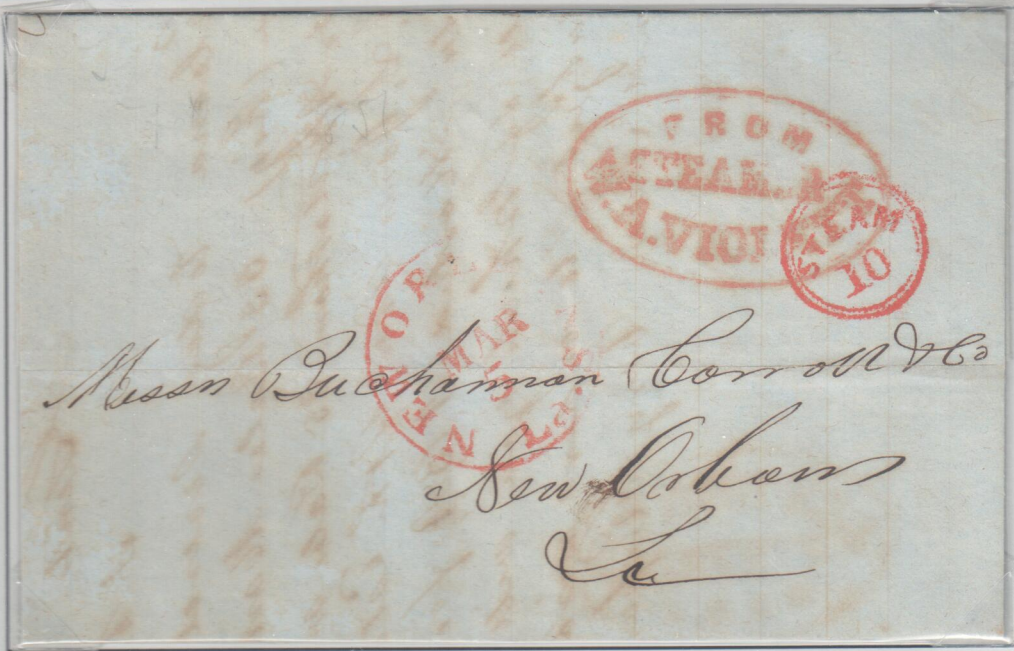 FROM
STEAM
A. VIO
STEAM
10
NEW OR L S La.
MAR
5
Messrs Buchannan Carroll & Co
New Orleans
La